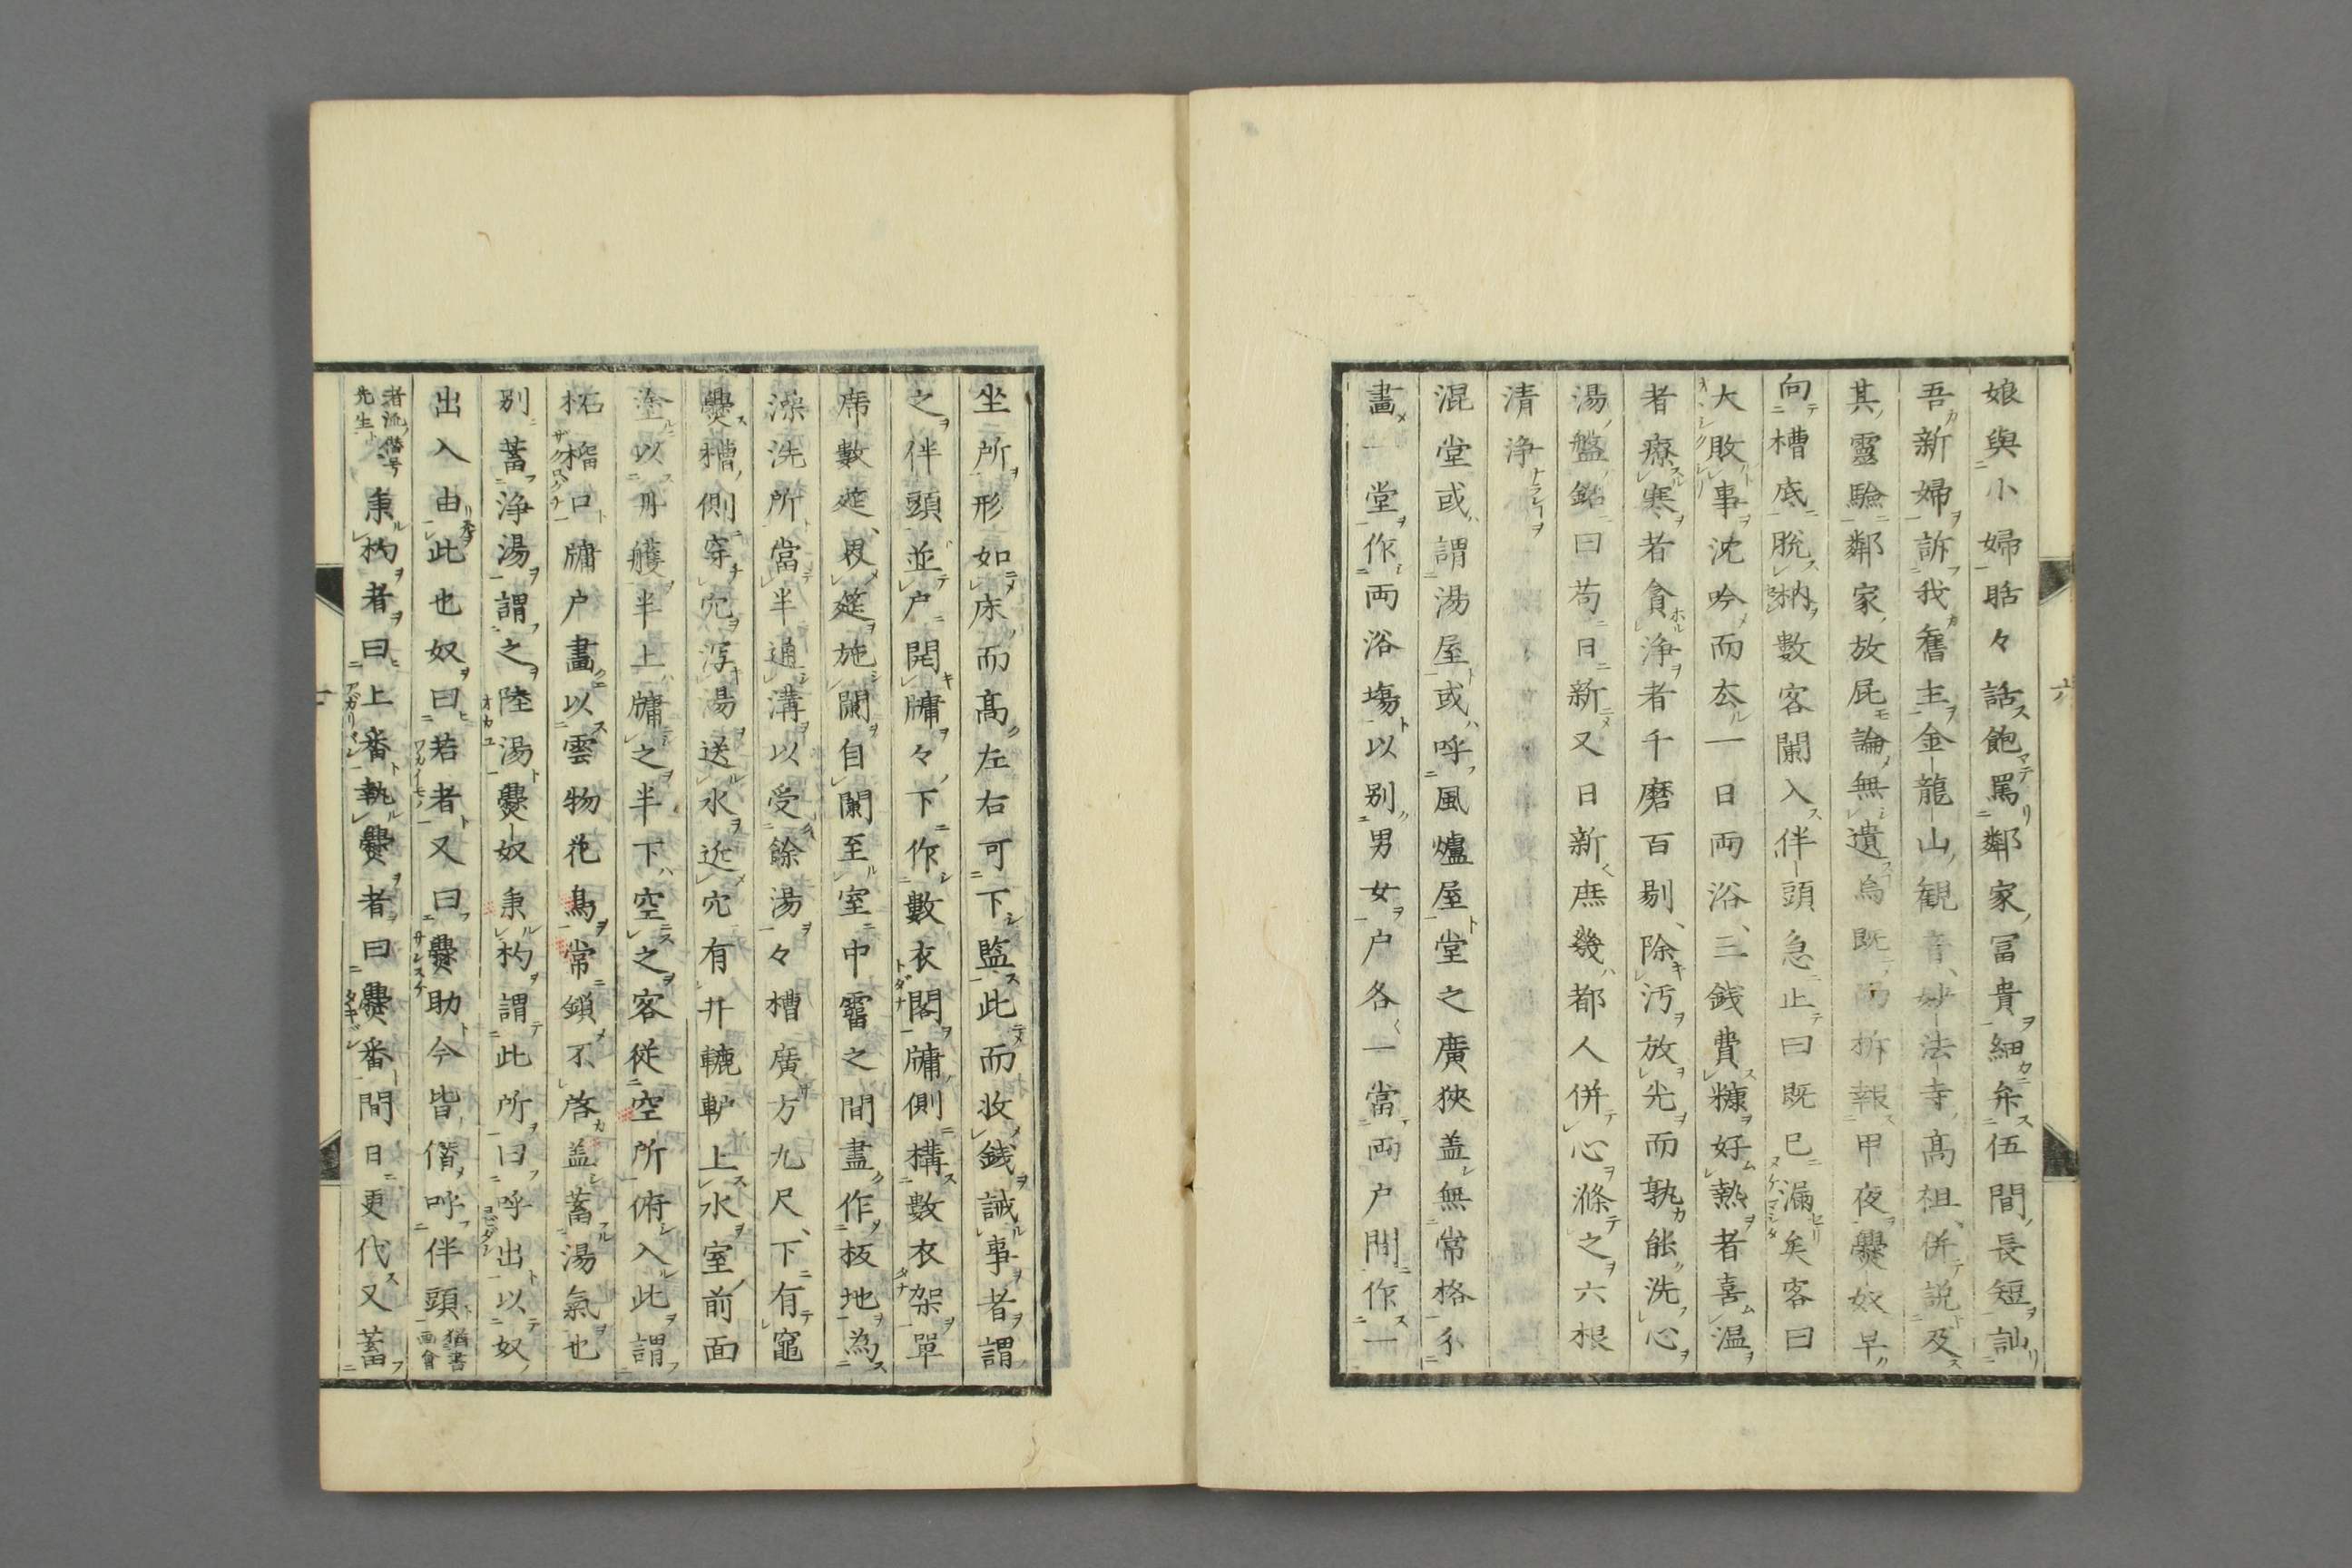 娘與小婦聒々話飽罵鄰家冨貴細弁伍間長短訕
吾新婦訴我舊主金龍山観音妙法寺髙祖併説及
其靈驗鄰家放屁論無遺焉既 柝報甲夜㸑奴早
向槽底脱枘數客闌入伴頭急止曰既已漏矣客曰
大敗事沈吟而去一日両浴三銭費糠好熱者喜温
者療寒者貪浄者千磨百剔除汚放光而孰能洗心
湯盤銘曰苟日新又日新庶幾都人併心滌之六根
清浄
混堂或謂湯屋或呼風爐屋堂之廣狹盖無常格分
畫一堂作両浴塲以别男女户各一當両户間作一
坐所形如床而髙左右可下監此而收銭誡事者謂
之伴頭並户開牗々下作數衣閣牗側構數衣架單
席數筵界筵施闌自闌至室中霤之間盡作板地為
澡洗所當半通溝以受餘湯々槽廣方九尺下有竈
㸑槽側穿穴泻湯送水近穴有井轆轤上水室前面
塗以丹雘半上牗之半下空之客従空所俯入此謂
柘榴口牗户畫以雲物花鳥常鎖不啓盖蓄湯氣也
别蓄浄湯謂之陸湯㸑奴秉杓謂此所曰呼出以奴
出入由此也奴曰若者又曰㸑助今皆僭呼伴頭猶書画會
者流僭号先生秉杓者曰上番執㸑者曰㸑番間日更代又蓄